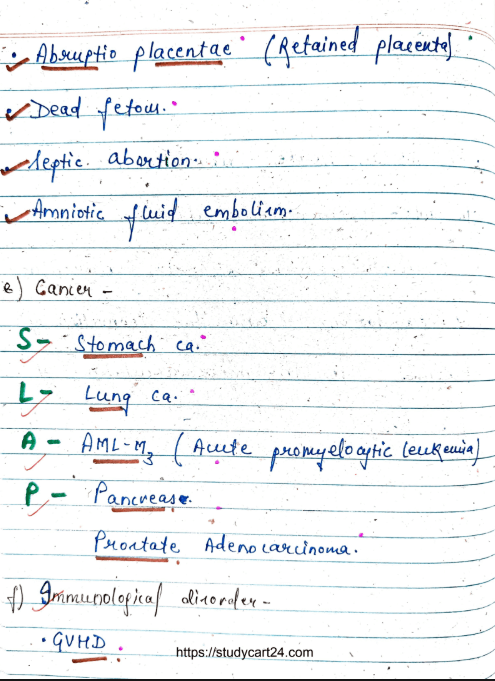 • Abruptio placentae (Retained placenta)
Dead fetous.
Septic abortion.
Amniotic fluid embolism.
e) Cancer -
S - Stomach ca.
L - Lung ca.
A - AML-M3 (Acute promyelocytic leukemia)
P - Pancrease.
Prostate Adenocarcinoma.
f) Immunological disorder -
• GVHD.
https://studycart24.com